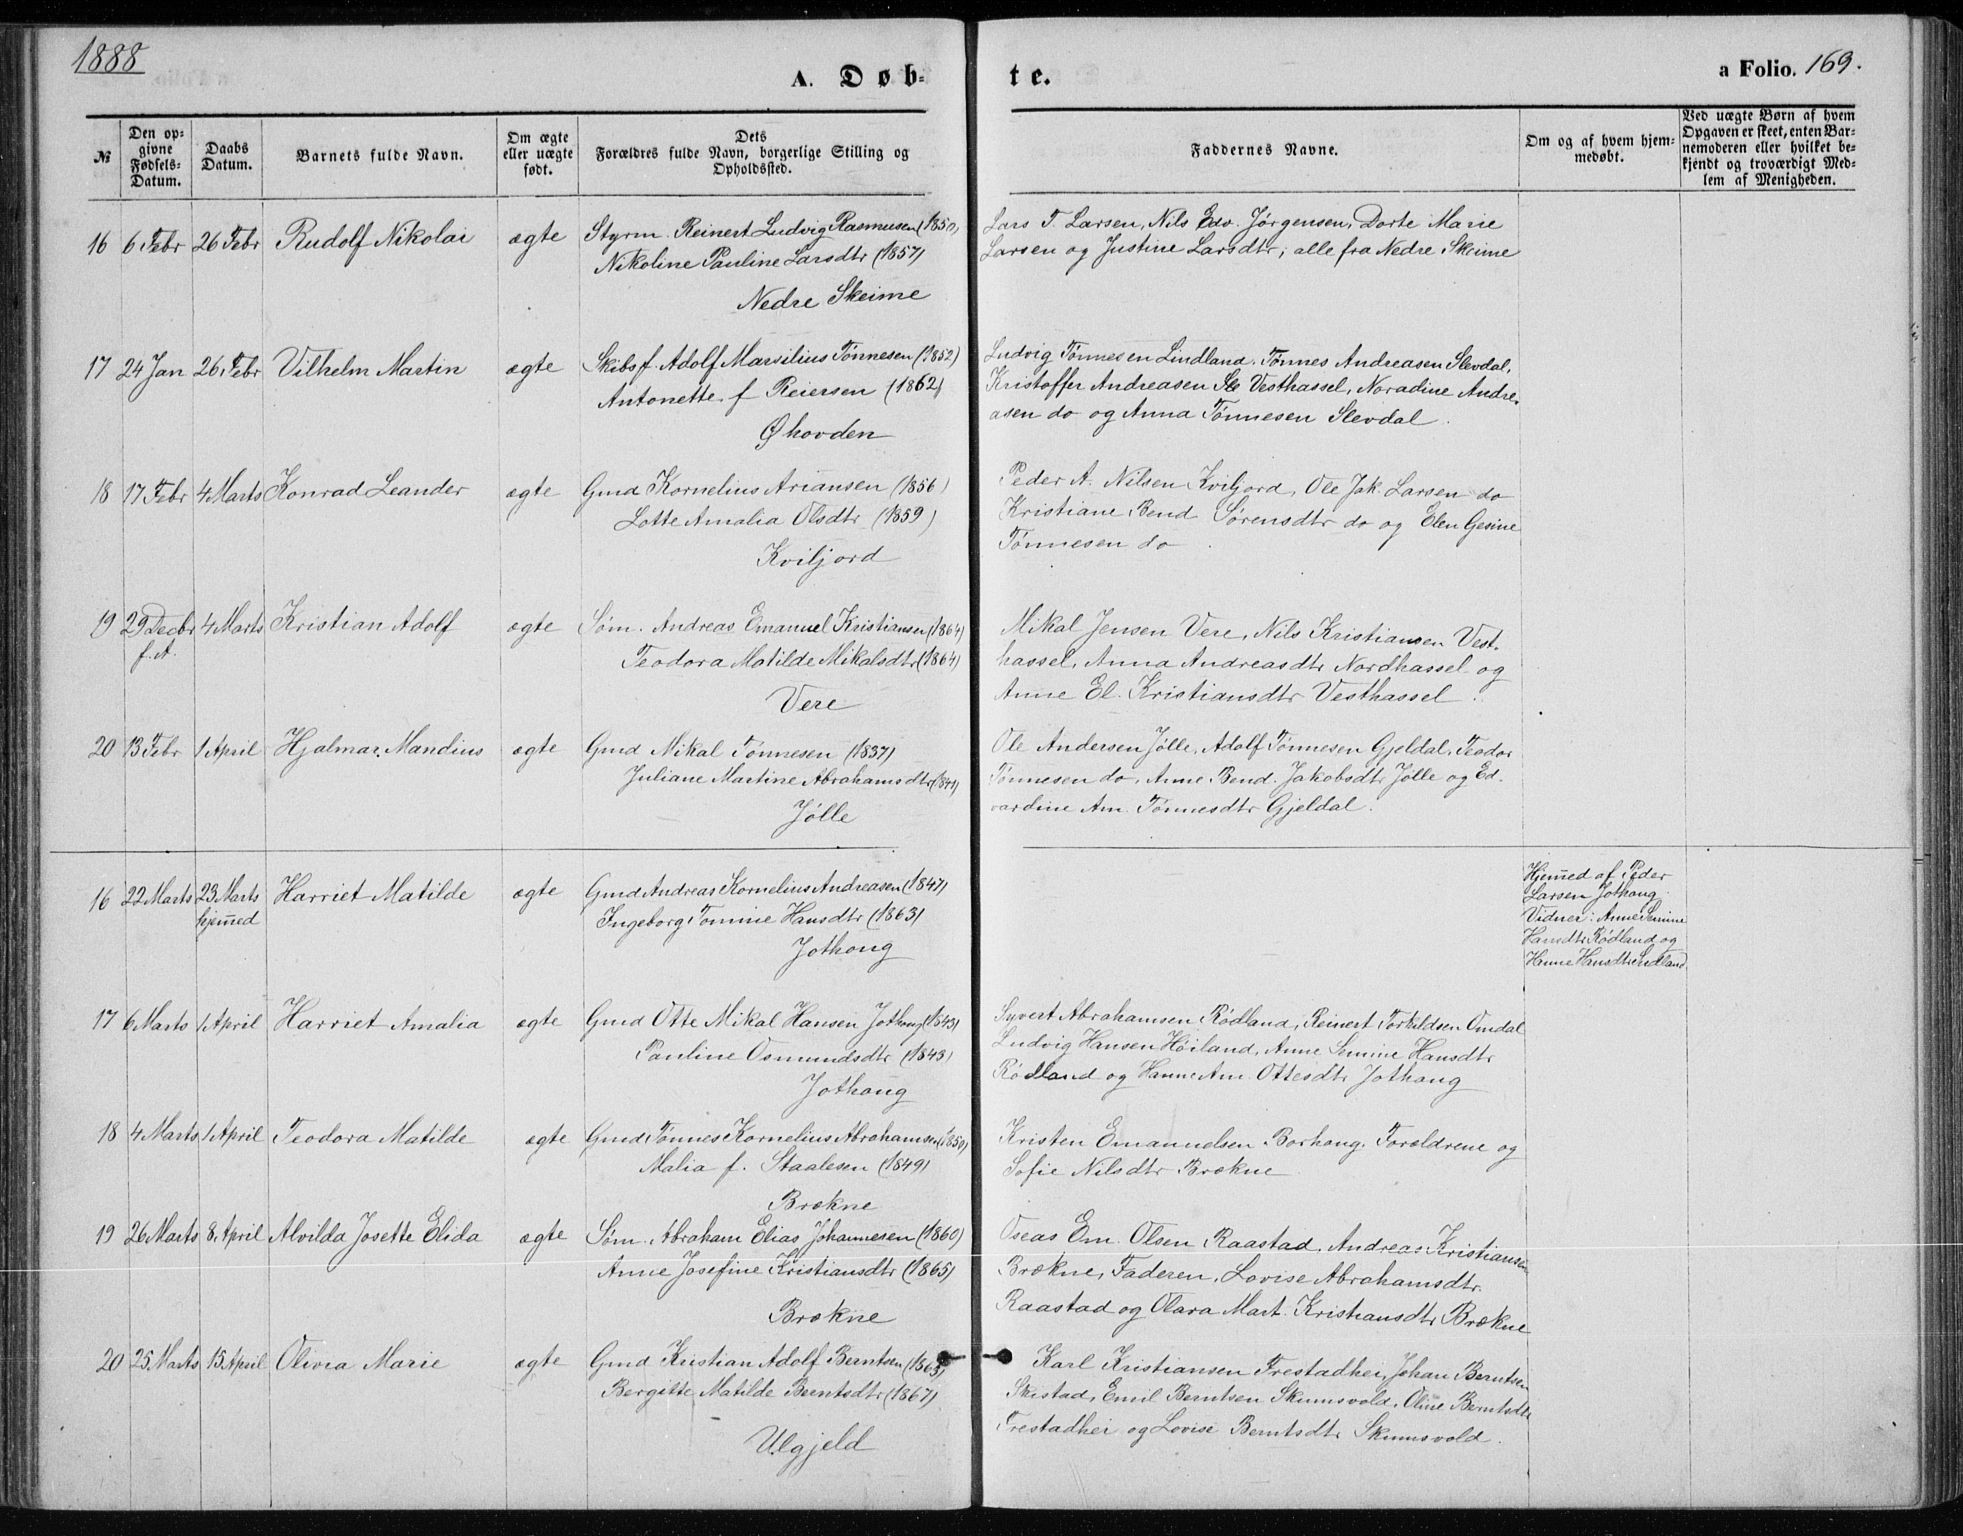 1888
A. Døb-
te.
a Folio. 169.
№
Den op-
givne
Fødsels-
Datum.
Daabs
Datum.
Barnets fulde Navn.
Om ægte
eller uægte
født.
Dets
Forældres fulde Navn, borgerlige Stilling og
Opholdssted.
Faddernes Navne.
Om og af hvem hjem-
medøbt.
Ved uægte Børn af hvem
Opgaven er skeet, enten Bar-
nemoderen eller hvilket be-
kjendt og troværdigt Med-
lem af Menigheden.
16 6 Febr 26 Febr Rudolf Nikolai ægte Styrm. Reinert Ludvig Rasmusen (1850)
Nikoline Pauline Larsdtr (1857)
Nedre Skeime
Lars T. Larsen, Nils Edv. Jørgensen, Dorte Marie
Larsen og Justine Larsdtr, alle fra Nedre Skeime
17 24 Jan 26 Febr Vilhelm Martin ægte Skibsf. Adolf Marsilius Tønnesen (1852)
Antonette f Reiersen (1862)
Øhovden
Ludvig Tønnesen Lindland, Tønnes Andreasen Slevdal,
Kristoffer Andreasen Sle Vesthassel, Noradine Andre-
asen do og Anna Tønnesen Slevdal.
18 17 Febr 4 Marts Konrad Leander ægte Gmd Kornelius Ariansen (1856)
Lotte Amalia Olsdtr (1859)
Kviljord
Peder A. Nilsen Kviljord, Ole Jak. Larsen do
Kristiane Bend Sørensdtr do og Elen Gesine
Tønnesen do.
19 29 Decbr 4 Marts Kristian Adolf ægte Søm. Andreas Emanuel Kristiansen (1864)
f. A. Teodora Matilde Mikalsdtr (1864)
Vere
Mikal Jensen Vere, Nils Kristiansen Vest-
hassel, Anna Andreasdtr Nordhassel og
Anne El. Kristiansdtr Vesthassel.
20 13 Febr 1 April Hjalmar Mandius ægte Gmd Mikal Tønnesen (1837)
Juliane Martine Abrahamsdtr (1841)
Jølle
Ole Andersen Jølle, Adolf Tønnesen Gjeldal, Teodor
Tønnesen do, Anne Bend. Jakobsdtr Jølle og Ed-
vardine Am. Tønnesdtr Gjeldal.
16 22 Marts 23 Marts Harriet Matilde ægte Gmd Andreas Kornelius Andreasen (1847)
hjemed Ingeborg Tomine Hansdtr (1863)
Jothong
Hjemed af Peder
Larsen Jothong.
Vidner: Anne Semine
Hansdtr Rødland og
Hanne Hansdtr
17 6 Marts 1 April Harriet Amalia ægte Gmd Otte Mikal Hansen Jothong (1843)
Pauline Osmundsdtr (1843)
Jothong
Syvert Abrahamsen Rødland, Reinert Torkildsen Omdal
Ludvig Hansen Høiland, Anne Semine Hansdtr
Rødland og Hanne Am. Ottesdtr Jothong
18 4 Marts 1 April Teodora Matilde ægte Gmd Tønnes Kornelius Abrahamsen (1850)
Malia f. Staalesen (1849)
Brækne
Kristen Emanuelsen Borhong, Forældrene og
Sofie Nilsdtr Brækne
19 26 Marts 8 April Alvilda Josette Elida ægte Søm. Abraham Elias Johannesen (1860)
Anne Josefine Kristiansdtr (1865)
Brækne
Oseas Em. Olsen Raastad, Andreas Kristiansen
Brækne, Faderen, Lovise Abrahamsdtr
Raastad og Olara Mart. Kristiansdtr Brækne
20 25 Marts 15 April Olivia Marie ægte Gmd Kristian Adolf Berntsen (1863)
Bergitte Matilde Berntsdtr (1867)
Ulgjeld
Karl Kristiansen Frestadhei, Johan Berntsen
Skistad, Emil Berntsen Skumsvold, Oline Berntsdtr
Frestadhei og Lovise Berntsdtr Skumsvold.